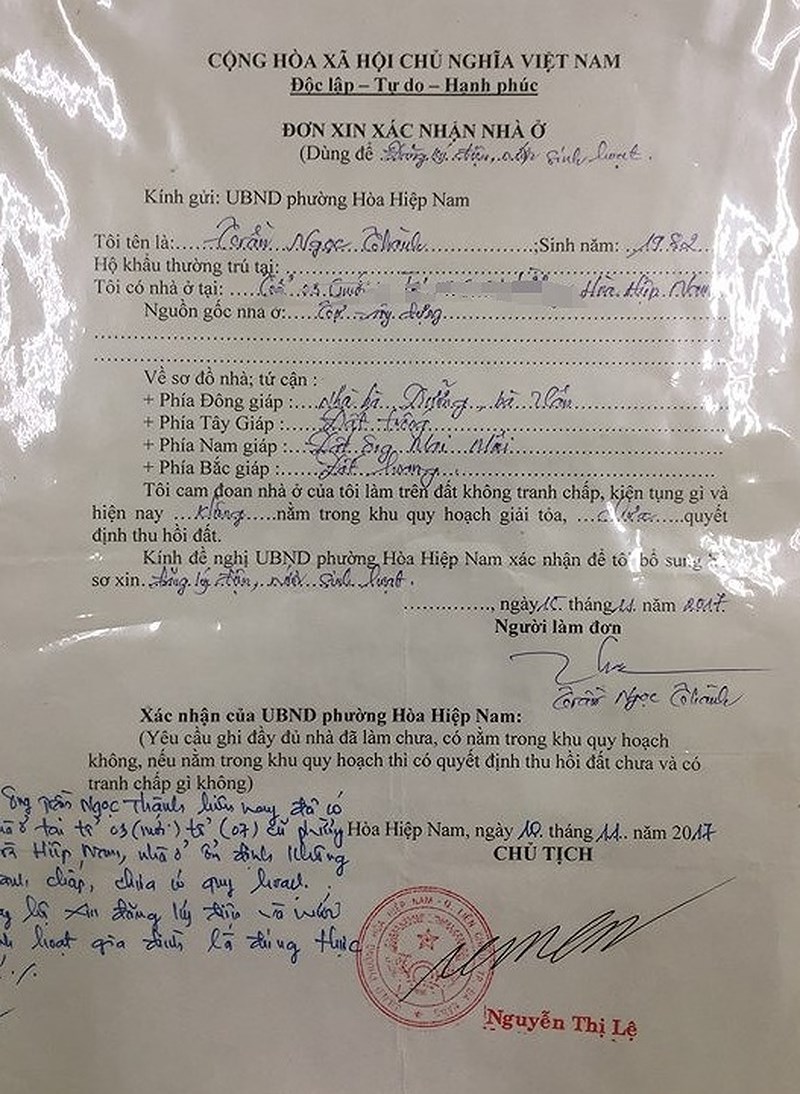 CỘNG HÒA XÃ HỘI CHỦ NGHĨA VIỆT NAM
Độc lập – Tự do – Hạnh phúc
ĐƠN XIN XÁC NHẬN NHÀ Ở
(Dùng để Đăng ký điện, nước sinh hoạt.
Kính gửi: UBND phường Hòa Hiệp Nam
Tôi tên là:.... Trần Ngọc Thành ....;Sinh năm: ..1982...
Hộ khẩu thường trú tại: ....
Tôi có nhà ở tại: .... Tổ 03 Hòa Hiệp Nam
Nguồn gốc nna ở:.... xây dựng....
Về sơ đồ nhà; tứ cận :
+ Phía Đông giáp :.... Nhà bà Dưỡng, bà Vân
+ Phía Tây Giáp :.... Đất trống
+ Phía Nam giáp :.... Đất ông Mai
+ Phía Bắc giáp :.... Đất
Tôi cam đoan nhà ở của tôi làm trên đất không tranh chấp, kiện tụng gì và
hiện nay ...không.....nằm trong khu quy hoạch giải tỏa, ...chưa.....quyết
định thu hồi đất.
Kính đề nghị UBND phường Hòa Hiệp Nam xác nhận để tôi bổ sung
sơ xin. đăng ký điện, nước sinh hoạt.
..............., ngày tháng 11. năm 2017.
Người làm đơn
Trần Ngọc Thành
Xác nhận của UBND phường Hòa Hiệp Nam:
(Yêu cầu ghi đầy đủ nhà đã làm chưa, có nằm trong khu quy hoạch
không, nếu nằm trong khu quy hoạch thì có quyết định thu hồi đất chưa và có
tranh chấp gì không)
Ông Trần Ngọc Thành hiện nay đã có
ở tại tổ 03 (mới) tổ (07) cũ phường
Hiệp Nam, nhà ở ổn định không
chấp, chưa có quy hoạch.
xin đăng ký điện và nước
hoạt gia đình là đúng thực
Hòa Hiệp Nam, ngày 10. tháng 11.. năm 2017
CHỦ TỊCH
Nguyễn Thị Lệ